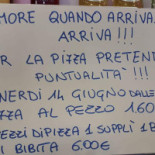 MORE QUANDO ARRIVA
ARRIVA!!!
R LA PIZZA PRETEND
PUNTUALITÀ!!!
ENERDI 14 GIUGNO DALLE
ZZA AL PEZZO 1.60
EZZI DI PIZZA 1 SUPPLÌ 1 B
I BIBITA 6.00€